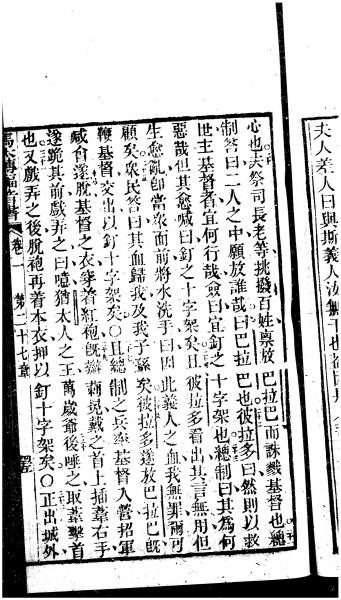 夫人差人曰與斯義人汝無干也蓋因
心也夫祭司長老等挑撥百姓禀放巴拉巴而誅戮基督也總
制答曰二人之中願放誰哉曰巴拉巴也彼拉多曰然則以救
世主基督者宜何行哉僉曰宜釘之十字架也總制曰其爲何
惡哉但其愈喊曰釘之十字架矣且彼拉多看出其言無用但
生愈亂卽當衆面前將水洗手曰因此義人之血我無罪爾可
顧矣衆民答曰其血歸我及我子孫矣彼拉多遂放巴拉巴旣
鞭基督交出以釘十字架矣○且總制之兵率基督入營招軍
咸會遂脫基督之衣穿着紅袍旣辮蕀冕戴之首上插葦右手
遂跪其前戲弄之曰噫猶太人之王萬歲爺後唾之取葦擊首
也又戲弄之後脫袍再着本衣押以釘十字架矣○正出城外
馬太傳福音書 卷一 第二十七章